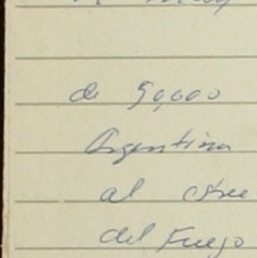 de 50,000
Argentina
al
del Fuego